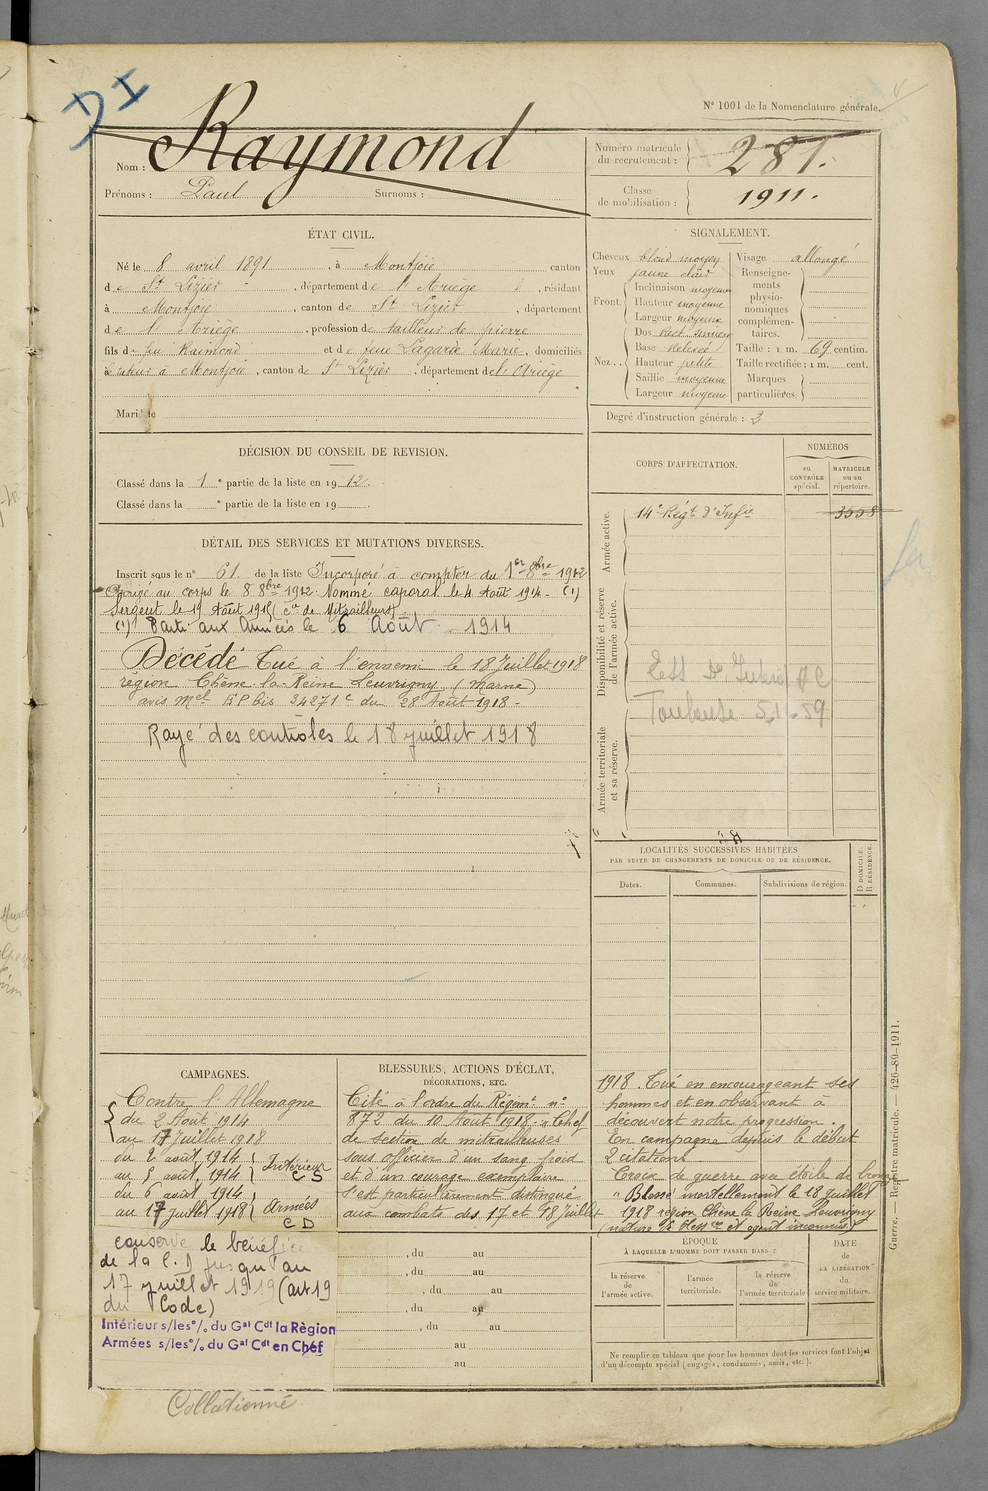 DI
N° 1001 de la Nomenclature générale.
Nom : Raymond
Prénoms : Paul Surnoms :
Numéro matricule du recrutement : 281.
Classe de mobilisation : 1911.
ÉTAT CIVIL.
Né le 8 avril 1891, à Montjoie, canton
de St Lizier, département de l'Ariège, résidant
à Montjoie, canton de St Lizier, département
de l'Ariège, profession de tailleur de pierre
fils de feu Raimond et de feue Lagarde Marie, domiciliés
à Montjoie, canton de St Lizier, département de l'Ariège
Marié le
SIGNALEMENT.
Cheveux blond moyen
Yeux jaune clair
Front. Inclinaison moyenne
Hauteur moyenne
Largeur moyenne
Nez. Dos rect. sinueux
Base relevée
Hauteur petite
Saillie moyenne
Largeur moyenne
Visage allongé
Renseignements physionomiques complémentaires.
Taille : 1 m. 69 centim.
Taille rectifiée : 1 m. cent.
Marques particulières.
Degré d'instruction générale : 3
DÉCISION DU CONSEIL DE REVISION.
Classé dans la 1e partie de la liste en 1912.
Classé dans la e partie de la liste en 19
CORPS D'AFFECTATION.
NUMÉROS
au CONTRÔLE spécial.
MATRICULE ou au répertoire.
Armée active.
14e Régt d'Infie 3558
Disponibilité et réserve de l'armée active.
Toulouse 5.1.59
Armée territoriale et sa réserve.
DÉTAIL DES SERVICES ET MUTATIONS DIVERSES.
Inscrit sous le n° 61 de la liste Incorporé à compter du 1er 8bre 1912
Arrivé au corps le 8 8bre 1912. Nommé caporal le 4 Août 1914 - (1)
Sergent le 19 Août 1915 (Cie de Mitrailleuses)
(1) Parti aux Armées le 6 Août 1914
Décédé Tué à l'ennemi le 18 Juillet 1918
région Chêne-la-Reine Leuvrigny (Marne)
avis Mel EP bis 34271 C du 28 Août 1918 -
Rayé des contrôles le 18 juillet 1918
LOCALITÉS SUCCESSIVES HABITÉES
PAR SUITE DE CHANGEMENTS DE DOMICILE OU DE RÉSIDENCE.
Dates. Communes. Subdivisions de région.
D DOMICILE. R RÉSIDENCE.
CAMPAGNES.
Contre l'Allemagne
du 2 Août 1914
au 17 Juillet 1918
du 2 août 1914
au 5 août 1914 Intérieur CS
du 6 août 1914
au 17 juillet 1918 Armées CD
conserve le bénéfice
de la C.D jusqu'au
17 juillet 1919 (art 19
du Code)
Intérieur s/les °/. du Gal Cdt la Région
Armées s/les °/. du Gal Cdt en Chef
BLESSURES, ACTIONS D'ÉCLAT,
DÉCORATIONS, ETC.
Cité à l'ordre du Régimt n°
872 du 10 Août 1918 : "Chef
de section de mitrailleuses
sous officier d'un sang froid
et d'un courage exemplaire
s'est particulièrement distingué
aux combats des 17 et 18 Juillet
1918. Tué en encourageant ses
hommes et en observant à
découvert notre progression.
En campagne depuis le début
2 citations.
Croix de guerre avec étoile de bronze
" Blessé mortellement le 18 juillet
1918 région Chêne la Reine Leuvrigny
(nature de blessre et agent inconnus)
, du au
, du au
, du au
, du au
, du au
au
au
ÉPOQUE
À LAQUELLE L'HOMME DOIT PASSER DANS :
la réserve de l'armée active.
l'armée territoriale.
la réserve de l'armée territoriale
DATE de LA LIBÉRATION du service militaire.
Ne remplir ce tableau que pour les hommes dont les services font l'objet
d'un décompte spécial (engagés, condamnés, omis, etc.).
Guerre. — Registre matricule. — 426-89-1911.
Collationné